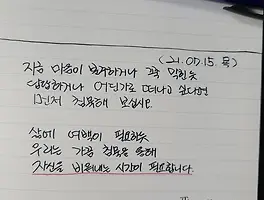 (21.07.15.목)
지금 마음이 복잡하거나 꽉 막힌듯
답답하거나 어딘가로 떠나고 싶다면
먼저 청소해 보십시오.
삶에 여행이 필요하듯
우리는 가끔 청소를 통해
자신을 비워내는 시간이 필요합니다.